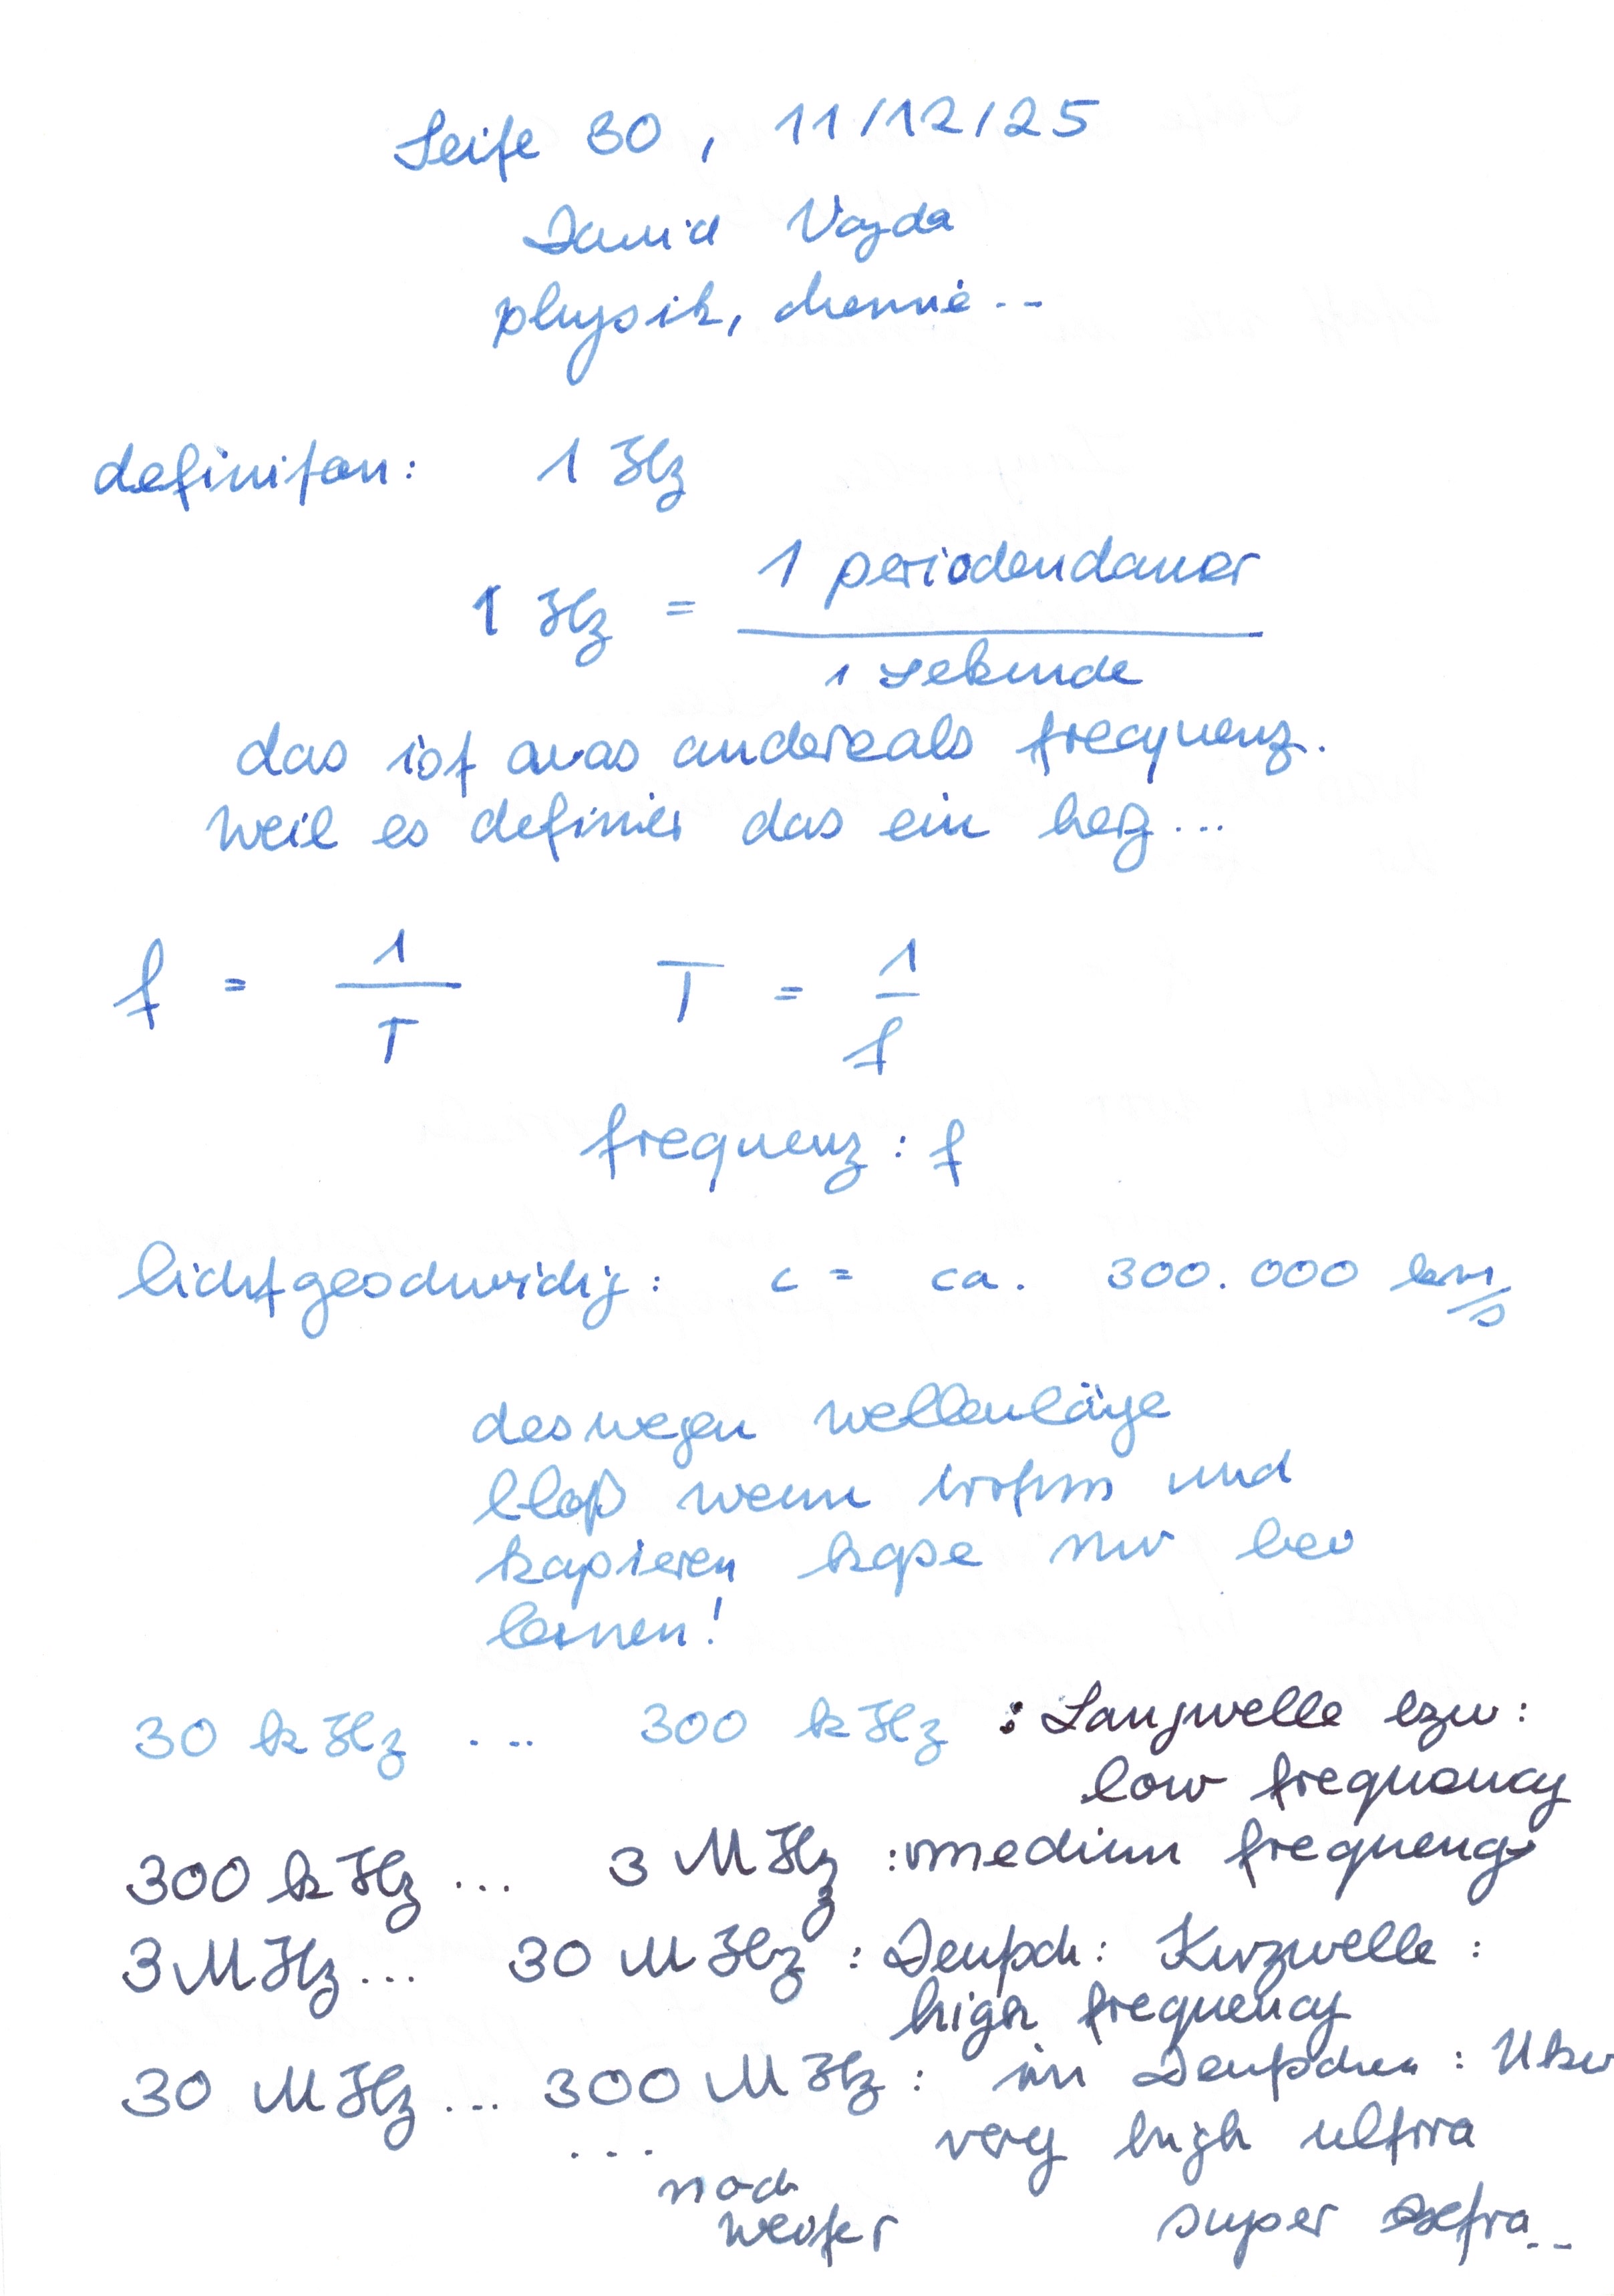 Seite 30, 11/12/25
David Vajda
physik, chemie..
definiton: 1 Hz
1 Hz = 1 periodendauer
1 sekunde
das ist was andereals frequenz.
weil es definier das ein herz...
f = 1/T T = 1/f
frequenz: f
lichtgeschwidig: c = ca. 300.000 km/s
deswegen wellenläge
bloß wenn und
kapieren nur
lernen!
30 kHz ... 300 kHz : Langwelle bzw:
low frequency
300 kHz ... 3 MHz : medium frequency
3 MHz ... 30 MHz : Deutsch: Kurzwelle:
high frequency
30 MHz ... 300 MHz : im Deutschen: Ukw
... very high ultra
noch
weiter super